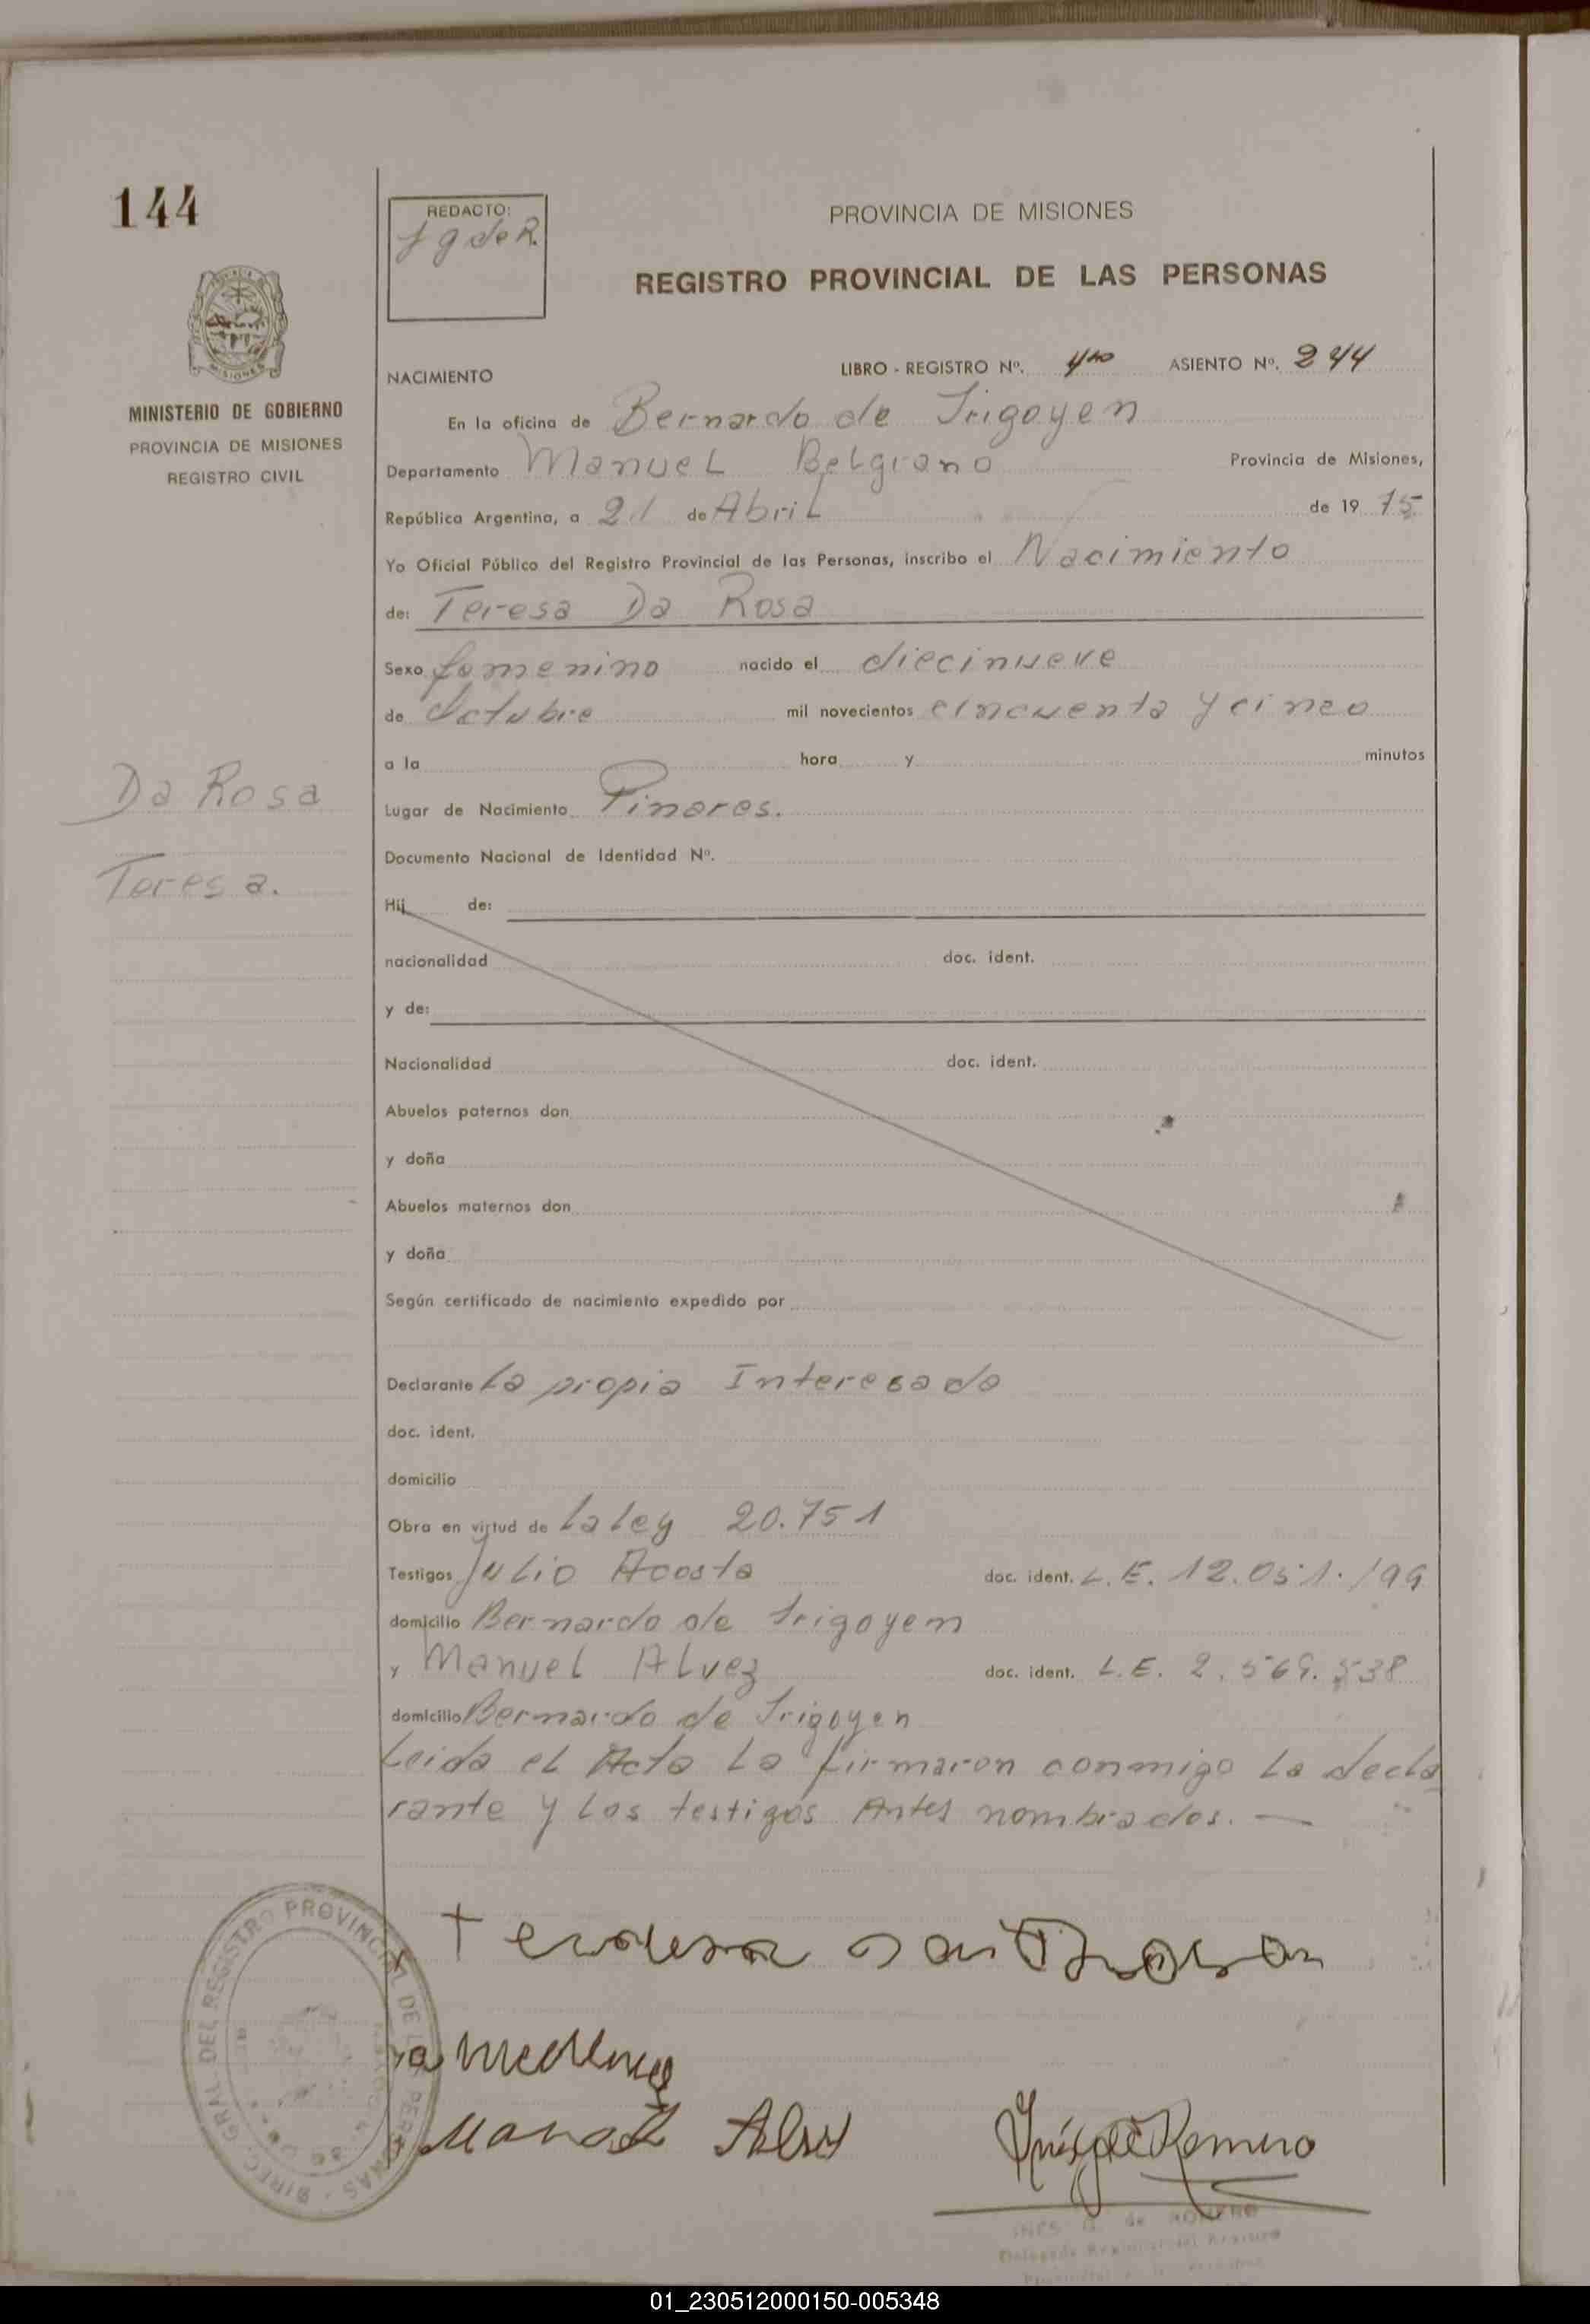 144
REDACTO:
PROVINCIA DE MISIONES
REGISTRO PROVINCIAL DE LAS PERSONAS
MISIONES
MINISTERIO DE GOBIERNO
PROVINCIA DE MISIONES
REGISTRO CIVIL
NACIMIENTO LIBRO - REGISTRO Nº. ASIENTO Nº. 244
En la oficina de Bernardo de Irigoyen
Departamento Manuel Belgrano Provincia de Misiones,
República Argentina, a 21 de Abril de 19 75
Yo Oficial Público del Registro Provincial de las Personas, inscribo el Nacimiento
de: Teresa Da Rosa
Sexo femenino nacido el diecinueve
de Octubre mil novecientos cincuenta y cinco
a la hora y minutos
Da Rosa
Teresa.
Lugar de Nacimiento Pinares.
Documento Nacional de Identidad Nº.
Hij de:
nacionalidad doc. ident.
y de:
Nacionalidad doc. ident.
Abuelos paternos don
y doña
Abuelos maternos don
y doña
Según certificado de nacimiento expedido por
Declarante La propia Interesada
doc. ident.
domicilio
Obra en virtud de La Ley 20.751
Testigos Julio Acosta doc. ident. L.E.
domicilio Bernardo de Irigoyen
y Manuel Alvez doc. ident. L.E. 2.569.538
domicilio Bernardo de Irigoyen
Leida el Acta La firmaron conmigo la decla
rante y los testigos Antes nombrados. —
DIREC. GRAL. DEL REGISTRO PROVINCIAL DE LAS PERSONAS
INES G. de ROMERO